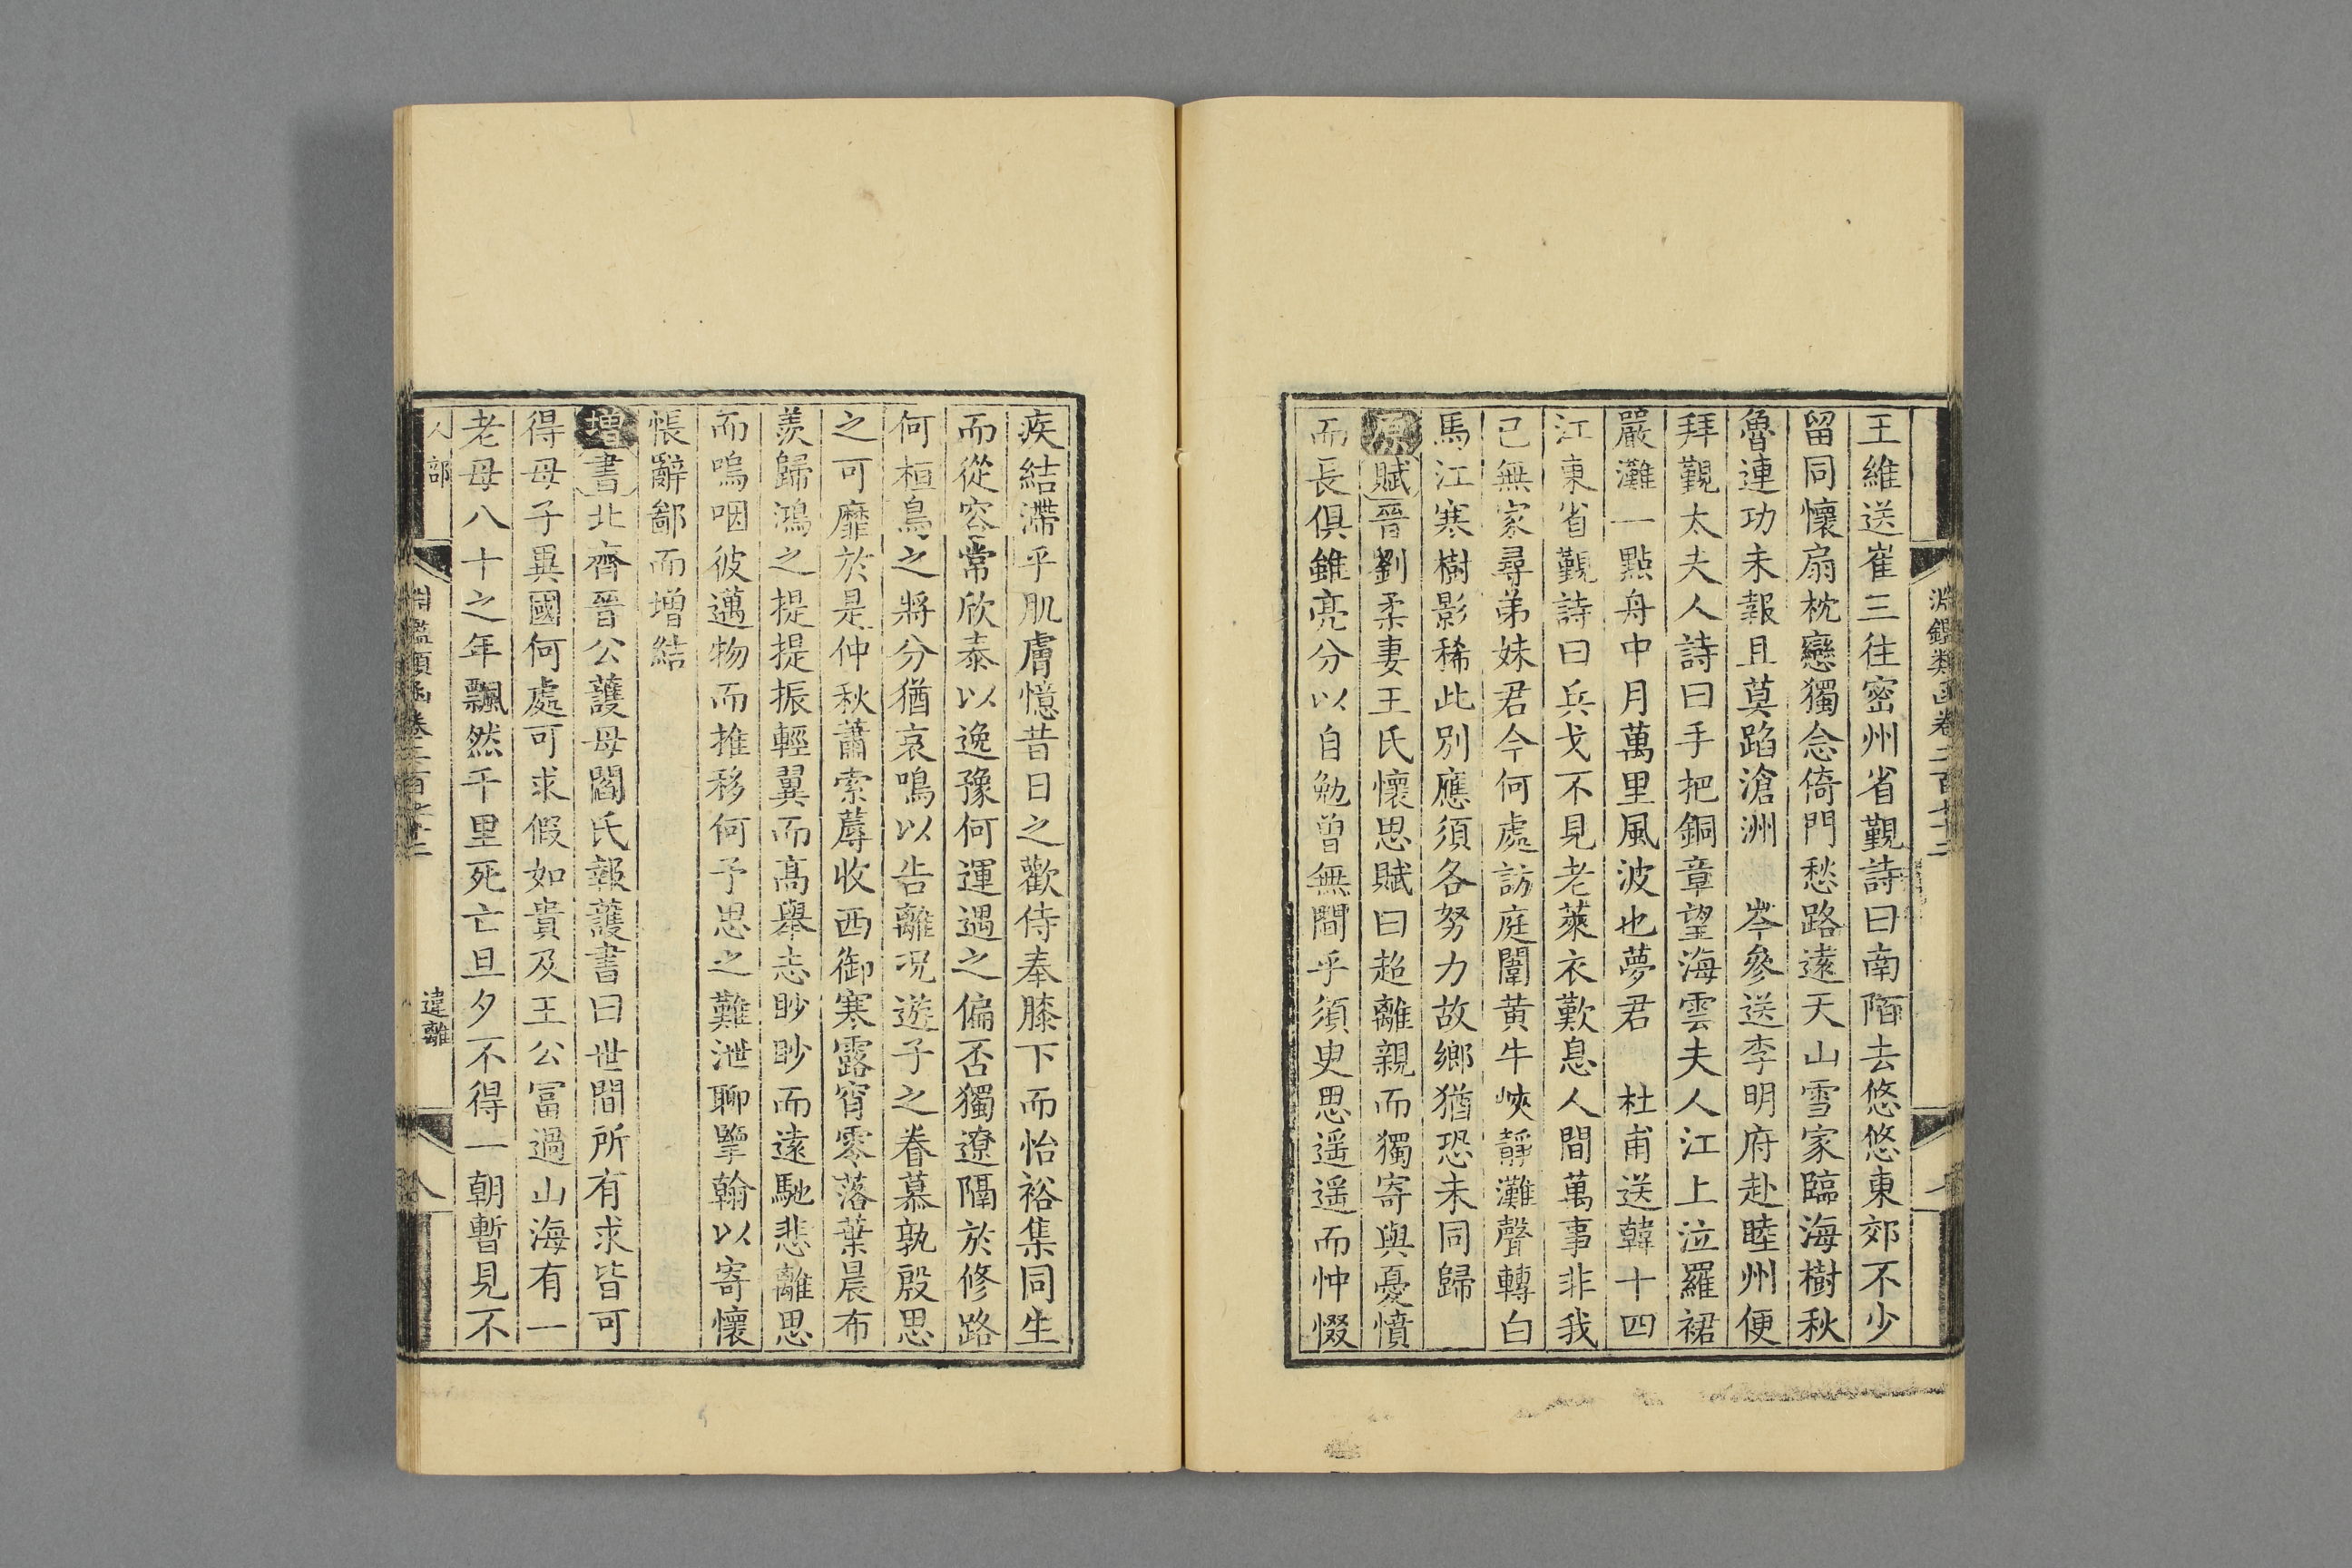 王維送崔三往密州省覲詩曰南陌去悠悠東郊不少
留同懷扇枕戀獨念倚門愁路遠天山雪家臨海樹秋
魯連功未報且莫蹈滄洲　岑參送李明府赴睦州便
拜覲太夫人詩曰手把銅章望海雲夫人江上泣羅裙
嚴灘一點舟中月萬里風波也夢君　杜甫送韓十四
江東省覲詩曰兵戈不見老萊衣歎息人間萬事非我
已無家尋弟妹君今何處訪庭闈黃牛峽靜灘聲轉白
馬江寒樹影稀此別應須各努力故鄉猶恐未同歸
原賦晉劉柔妻王氏懷思賦曰超離親而獨寄與憂憤
而長俱雖亮分以自勉曾無間乎須臾思遥遥而忡惙
疾結滯乎肌膚憶昔日之歡侍奉膝下而怡裕集同生
而從容常欣泰以逸豫何運遇之偏否獨遼隔於修路
何桓鳥之將分猶哀鳴以告離况遊子之眷慕孰殷思
之可靡於是仲秋蕭索蓐收西御寒露宵零落葉晨布
羨歸鴻之提提振輕翼而高舉志眇眇而遠馳悲離思
而嗚咽彼邁物而推移何予思之難泄聊擥翰以寄懷
悵辭鄙而增結
增書北齊晉公護母閻氏報護書曰世間所有求皆可
得母子異國何處可求假如貴及王公富過山海有一
老母八十之年飄然千里死亡旦夕不得一朝暫見不
人部
淵鑑類函卷二百七十二
違離
八